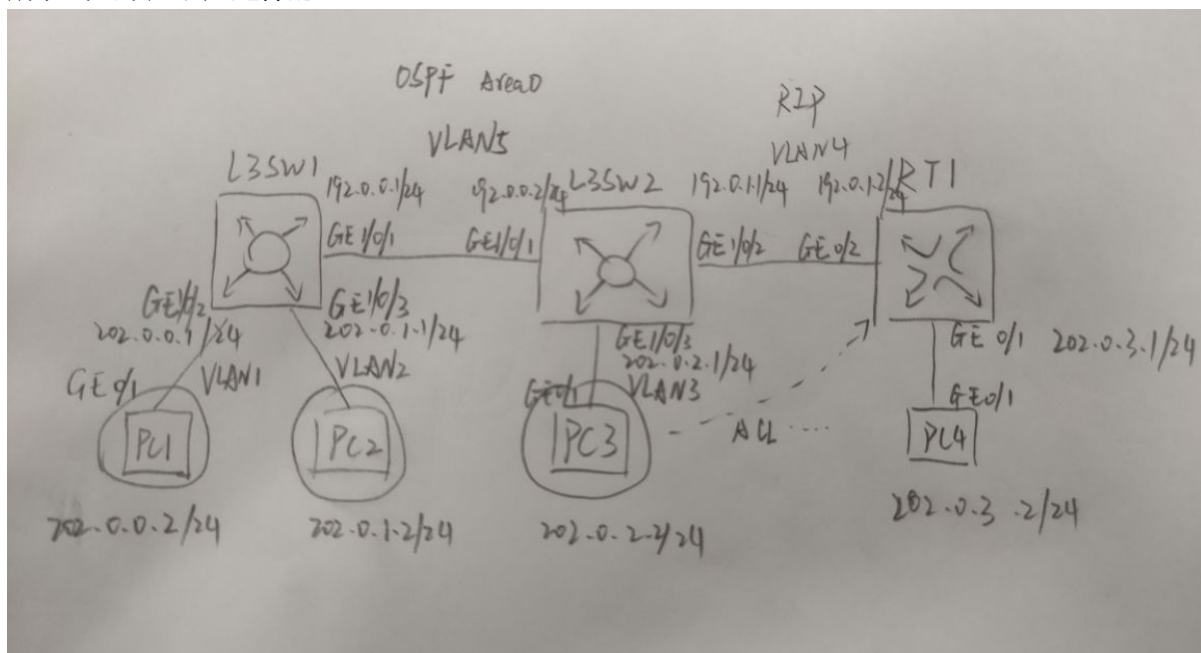 OSPF Area0
RIP
VLAN5
VLAN4
L3SW1
L3SW2
RT1
192.0.0.1/24
192.0.0.2/24
192.0.1.1/24
192.0.1.2/24
GE1/0/1
GE1/0/1
GE1/0/2
GE0/2
GE1/0/3
202.0.0.1/24
202.0.1.1/24
GE1/0/3
202.0.2.1/24
GE0/1
202.0.3.1/24
GE0/1
VLAN1
VLAN2
GE0/1
VLAN3
GE0/1
PC1
PC2
PC3
ACL
PC4
202.0.0.2/24
202.0.1.2/24
202.0.2.2/24
202.0.3.2/24